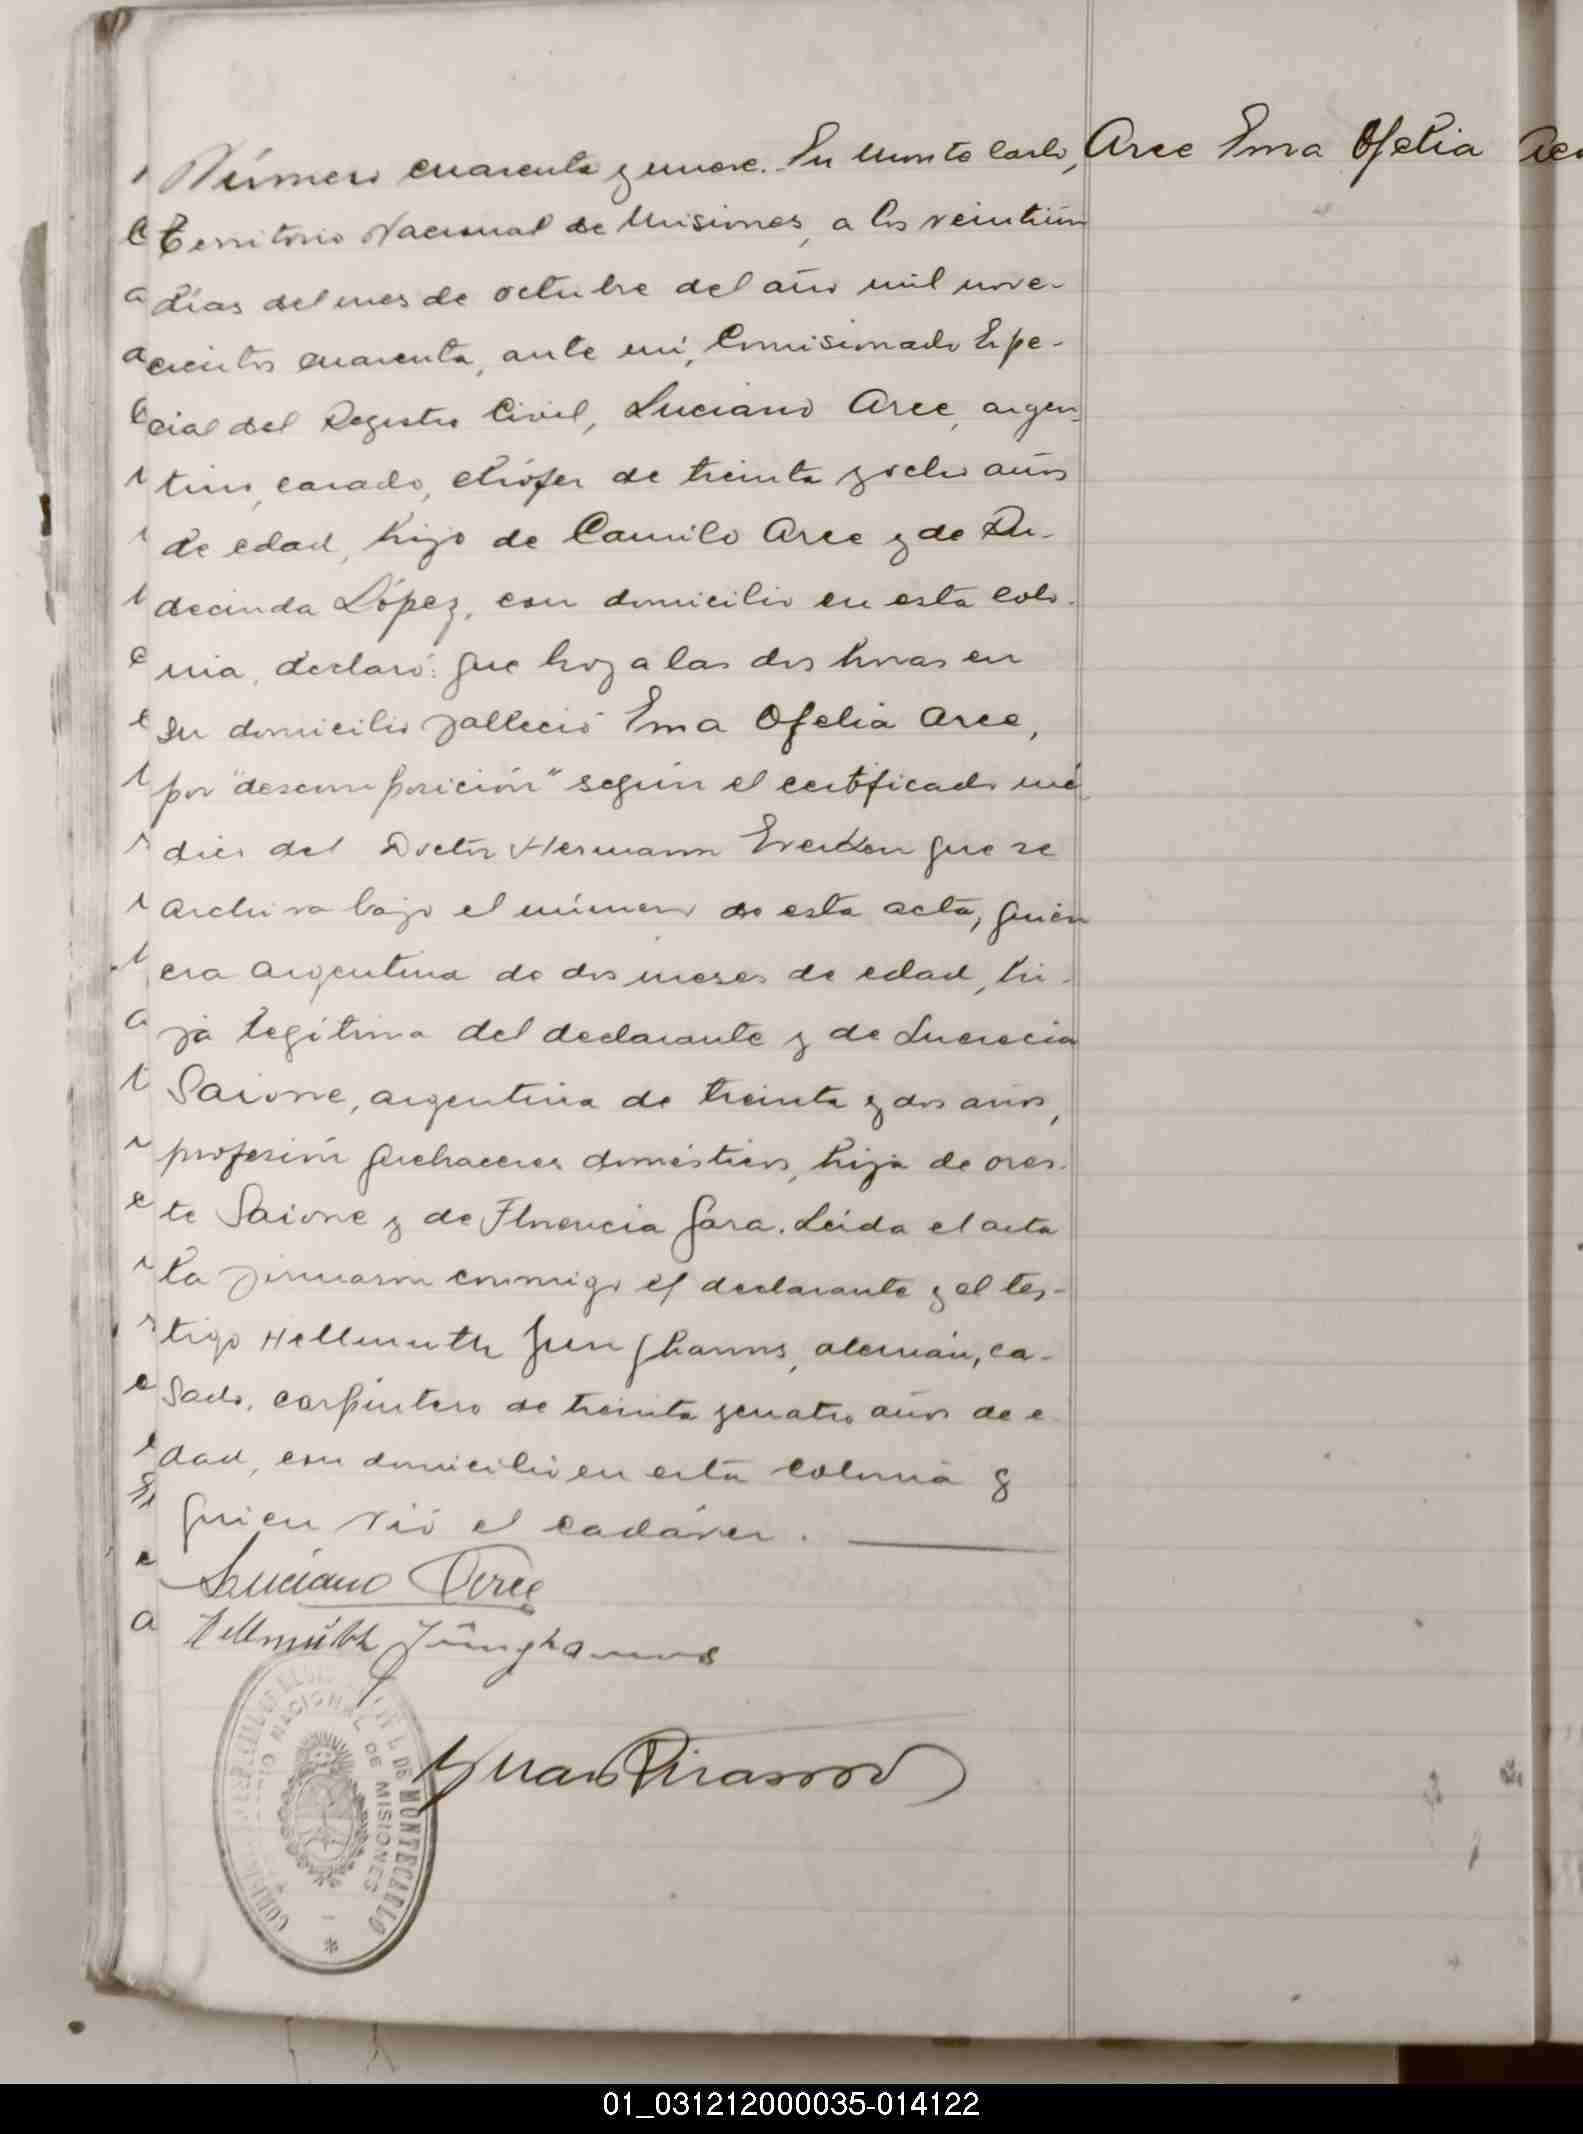 Número cuarenta y nueve. En Monte Carlo, Arce Ema Ofelia
Territorio Nacional de Misiones, a los veintiún
días del mes de octubre del año mil nove-
cientos cuarenta, ante mí, Comisionado Espe-
cial del Registro Civil, Luciano Arce, argen-
tino, casado, chófer de treinta y ocho años
de edad, hijo de Camilo Arce y de Ru-
decinda López, con domicilio en esta colo-
nia, declaró: que hoy a las dos horas en
su domicilio falleció Ema Ofelia Arce,
por "descomposición" según el certificado mé-
dico del Doctor Hermann Everken que se
archiva bajo el número de esta acta, quien
era argentina de dos meses de edad, hi-
ja legítima del declarante y de Lucrecia
Saione, argentina de treinta y dos años,
profesión quehaceres domésticos, hija de Ores-
te Saione y de Florencia Gara. Leída el acta
la firmaron conmigo el declarante y el tes-
tigo Hellmuth Junghanns, alemán, ca-
sado, carpintero de treinta y cuatro años de e-
dad, con domicilio en esta colonia y
quien vió el cadáver.
Luciano Arce
Hellmuth Junghanns
Juan
DE MONTECARLO
NACIONAL DE MISIONES
01_031212000035-014122